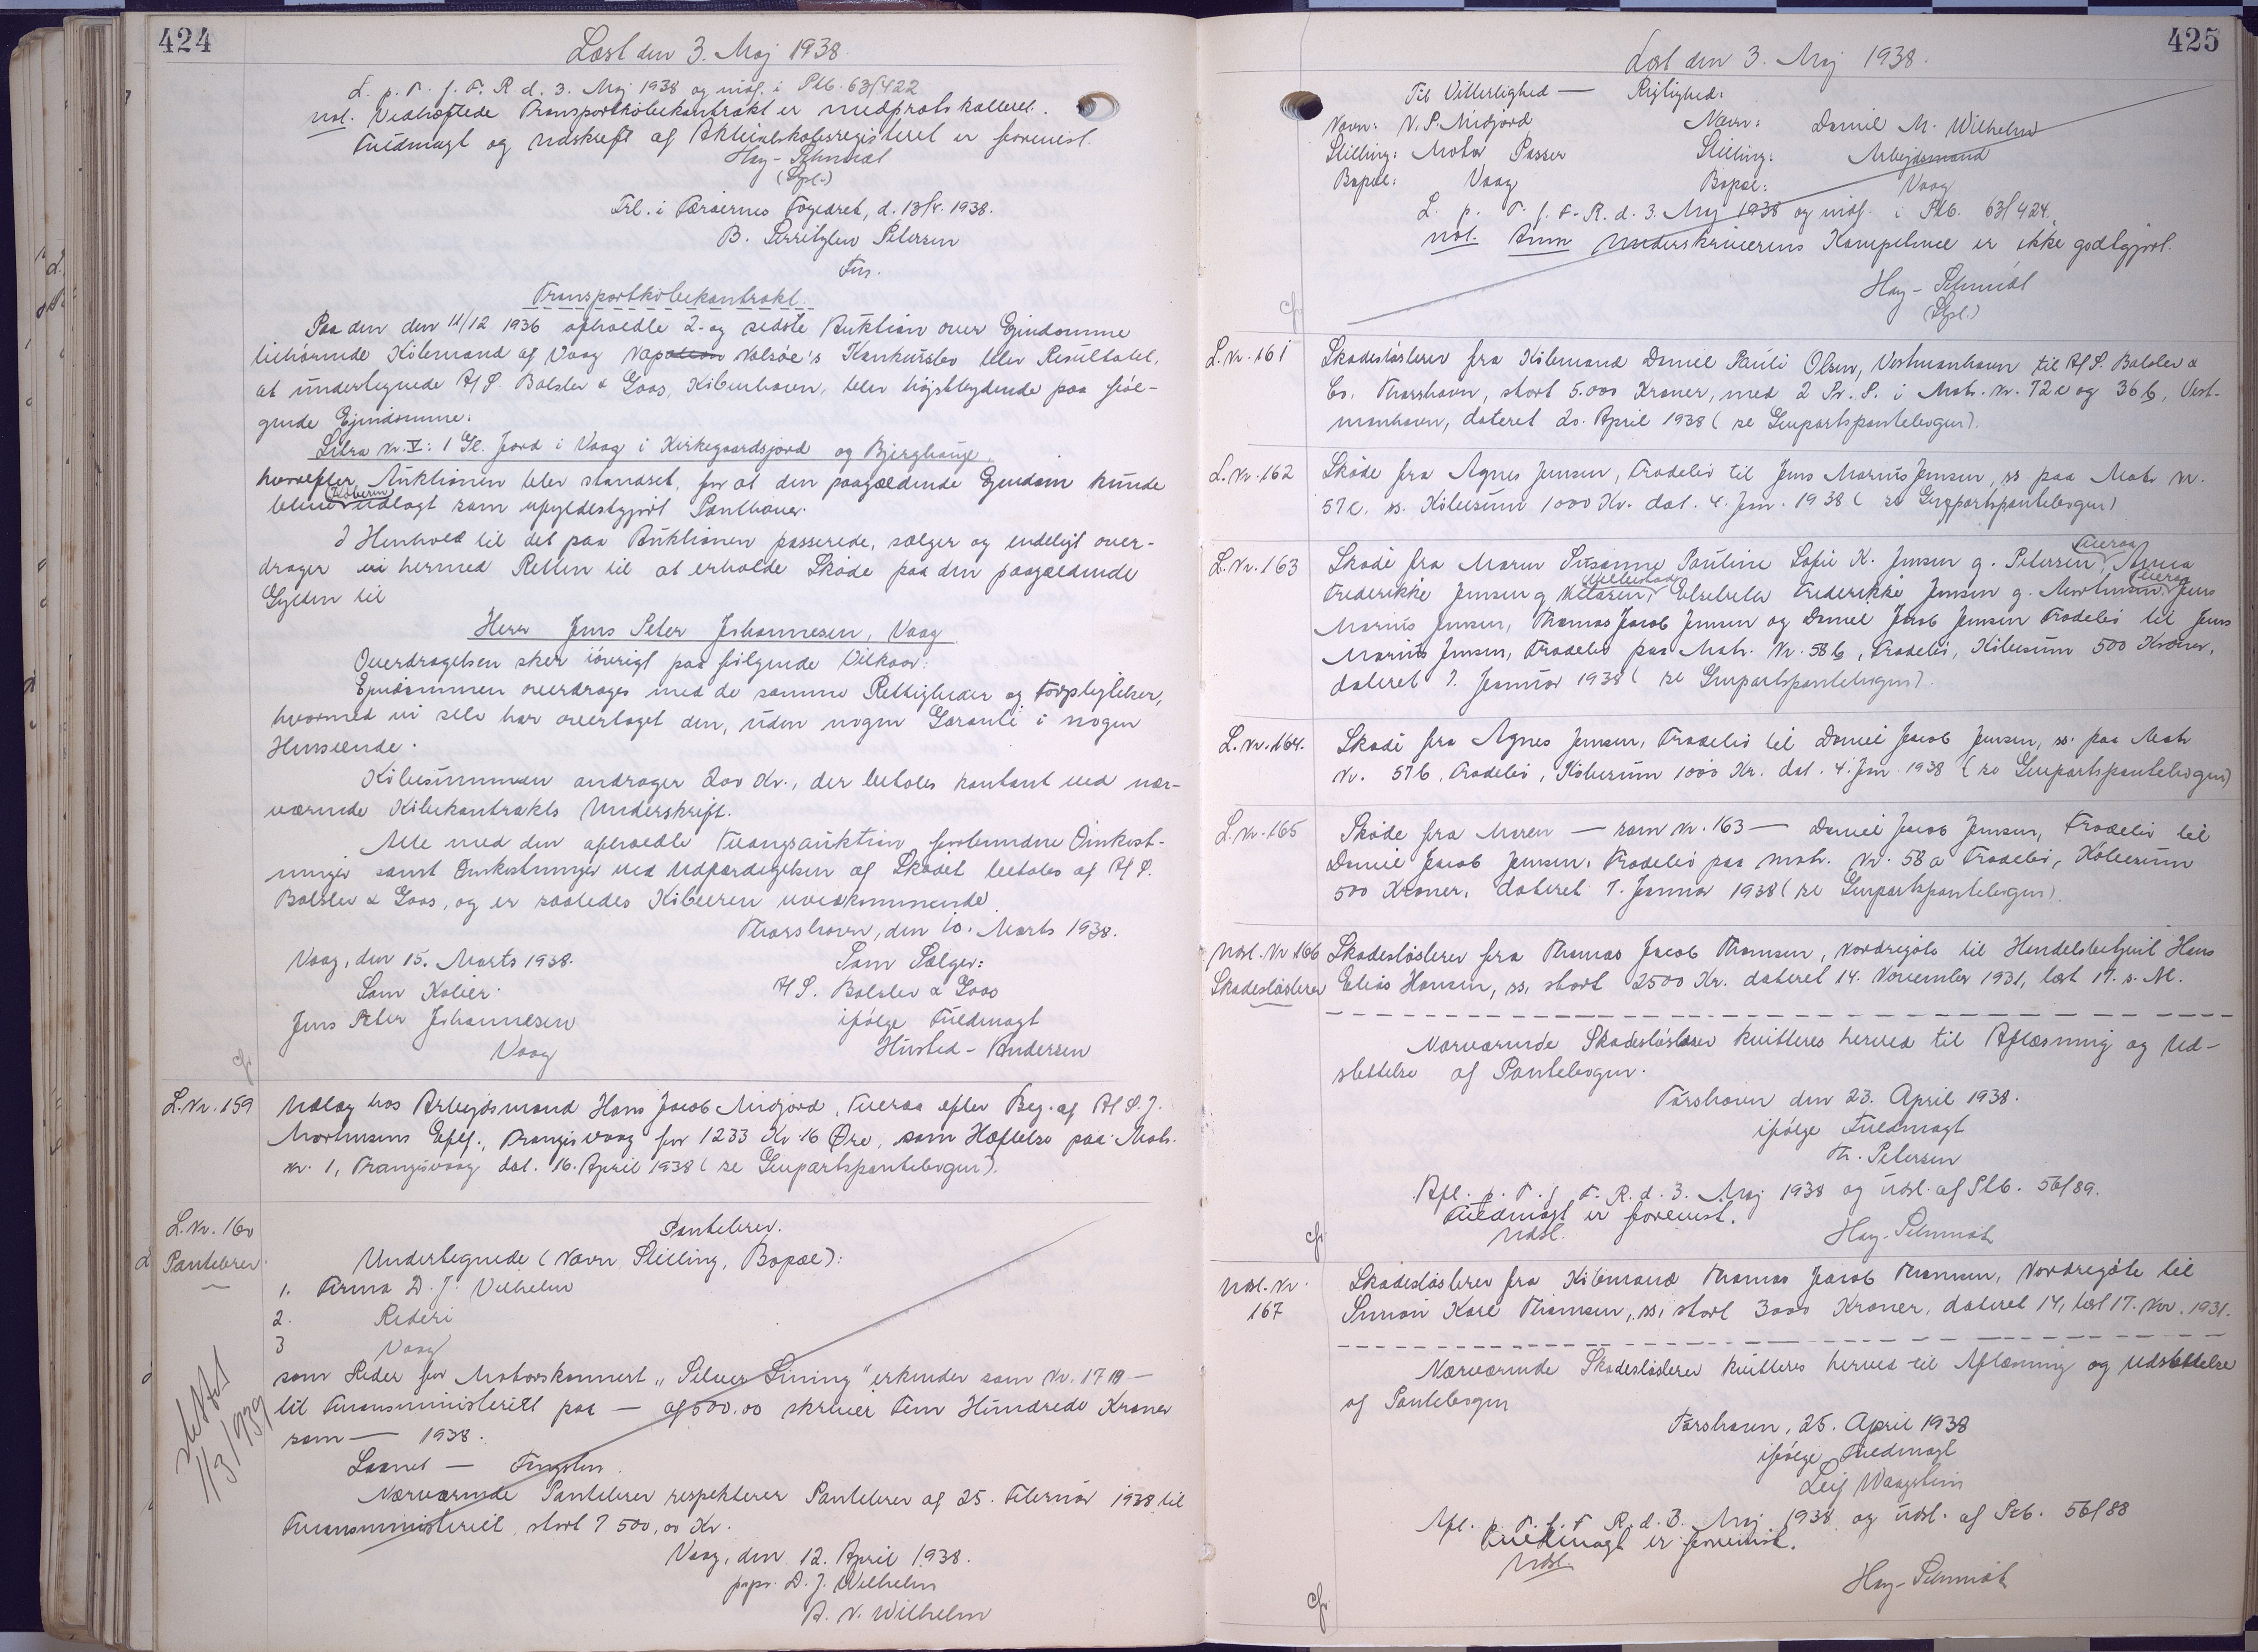 424
Læst den 3. Maj 1938
L. p. T. f. F. R d. 3. Maj 1938 og indf. i Ptb. 63/422
not. Vedhæftede Transportkøbekontrakt er medprotokolleret.
Fuldmagt og Udskrift af Aktieselskabsregisteret er forevist.
Hay-Schmidt
(Spl.)
Trl. i Færøernes Fogedret, d. 13/5. 1938.
B. Petersen
Fm.
Transportkøbekontrakt.
Paa den den 11/12 1936 afholdte 2- og sidste Auktion over Ejendomme
tilhørende Købmand af Vaag Napoleon Nolsøe's Konkursbo blev Resultatet,
at undertegnede A/S. Balslev & Goos, København, blev højstbydende paa føl-
gende Ejendomme:
Litra Nr. V: 1 Gl. Jord i Vaag i Kirkegaardsjord og Bjerghauge,
hvorefter Auktionen blev standset, for at den paagældende Ejendom kunde
blive Køberen udlagt som ufyldestgjort Panthaver.
I Henhold til det paa Auktionen passerede, sælger og endeligt over-
drager vi hermed Retten til at erholde Skøde paa den paagældende
Gylden til
Herr Jens Peter Johannesen, Vaag
Overdragelsen sker iøvrigt paa følgende Vilkaar:
Ejendommen overdrages med de samme Rettigheder og Forpligtelser,
hvormed vi selv har overtaget den, uden nogen Garanti i nogen
Henseende.
Købesummen andrager 200 Kr., der betales kontant ved nær-
værende Købekontrakts Underskrift.
Alle med den afholdte Tvangsauktion forbundne Omkost-
ninger samt Omkostninger ved Udfærdigelsen af Skødet betales af A/S.
Balslev & Goos, og er saaledes Køberen uvedkommende.
Thorshavn, den 10. Marts 1938.
Vaag, den 15. Marts 1938.
Som Sælger:
Som Køber.
A/S. Balslev & Goos
Jens Peter Johannesen
ifølge Fuldmagt
Vaag
Husted-Andersen
cf.
L. Nr. 159
Udlæg hos Arbejdsmand Hans Jacob Midjord, Tveraa efter Beg. af A/S. J.
Mortensens Eftf., Trangisvaag for 1233 Kr. 16 Øre, som Hæftelse paa Matr.
nr. 1, Trangisvaag dat. 16. April 1938 (se Genpartspantebogen).
L. Nr. 160
Pantebrev.
Pantebrev.
Undertegnede (Navn Stilling, Bopæl):
1. Firma D. J. Vilhelm
2. Rederi
3 Vaag
som Reder for Motorskonnert „Silver Lining" erkender som Nr. 17 —
til Finansministeriet paa — af 500.00 skriver Fem Hundrede Kroner
som — 1938.
Laanet — Tingsten.
Nærværende Pantebrev respekterer Pantebrev af 25. Februar 1938 til
Finansministeriet, stort 7.500,00 Kr.
Vaag, den 12. April 1938.
pr.pr. D. J. Wilhelm
A. N. Wilhelm
slettet
1/3 1939
425
Læst den 3. Maj 1938.
Til Vitterlighed — Rigtighed:
Navn: N. P. Midjord
Navn: Daniel M. Wilhelm
Stilling: Motor Passer
Stilling: Arbejdsmand
Bopæl: Vaag
Bopæl: Vaag
L. p. T. f. F. R. d. 3. Maj 1938 og indf. i Ptb. 63/424.
not. Ann Underskriverens Kompetence er ikke godtgjort.
Hay-Schmidt
(Spl.)
cf.
L. Nr. 161
Skadesløsbrev fra Købmand Daniel Pauli Olsen, Vestmanhavn til A/S. Balslev &
Co. Thorshavn, stort 5.000 Kroner, med 2 Pr. P. i Matr. Nr. 72c og 36b, Vest-
manhavn, dateret 20. April 1938 (se Genpartspantebogen).
L. Nr. 162
Skøde fra Agnes Jensen, Frodebø til Jens Marius Jensen, ss paa Matr. Nr.
57c, ss. Købesum 1000 Kr. dat. 4. Jan. 1938 (se Genpartspantebogen)
L. Nr. 163
Skøde fra Maren Susanne Pauline Sofie K. Jensen g. Petersen, Tveraa, Anna
Frederikke Jensen g. Elsebeba Frederikke Jensen g. Mortensen, Tveraa, Jens
Marius Jensen, Thomas Jacob Jensen og Daniel Jacob Jensen Frodebø til Jens
Marius Jensen, Frodebø paa Matr. Nr. 58b, Frodebø, Købesum 500 Kroner,
dateret 7. Januar 1938 (se Genpartspantebogen).
L. Nr. 164.
Skøde fra Agnes Jensen, Frodebø til Daniel Jacob Jensen, ss. paa Matr
Nr. 57b, Frodebø, Købesum 1000 Kr. dat. 4. Jan. 1938 (se Genpartspantebogen)
L. Nr. 165
Skøde fra Maren — som Nr. 163 — Daniel Jacob Jensen, Frodebø til
Daniel Jacob Jensen, Frodebø paa Matr. Nr. 58a Frodebø, Købesum
500 Kroner, dateret 7. Januar 1938 (se Genpartspantebogen).
Udsl. Nr 166
Skadesløsbrev
Skadesløsbrev fra Thomas Jacob Thomsen, Nordregøte til Handelsbetjent Hans
Elias Hansen, ss, stort 2500 Kr. dateret 14. November 1931, læst 17. s. M.
Nærværende Skadesløsbrev kvitteres herved til Aflæsning og Ud-
slettelse af Pantebogen.
Tórshavn den 23. April 1938.
ifølge Fuldmagt
Th. Petersen
Afl. p. T. f. F. R. d. 3. Maj 1938 og udsl. af Ptb. 56/89.
Fuldmagt er forevist.
Udsl.
Hay-Schmidt
cf.
Udsl. Nr.
167
Skadesløsbrev fra Købmand Thomas Jacob Thomsen, Nordregøte til
Simon Karl Thomsen, ss, stort 3000 Kroner, dateret 14, læst 17. Nov. 1931.
Nærværende Skadesløsbrev kvitteres herved til Aflæsning og Udslettelse
af Pantebogen
Tórshavn, 25. April 1938
ifølge Fuldmagt
Leif Waagstein
Afl. p. T. f. F. R. d. 3. Maj 1938 og udsl. af Ptb. 56/88
Fuldmagt er forevist.
Udsl.
Hay-Schmidt
cf.